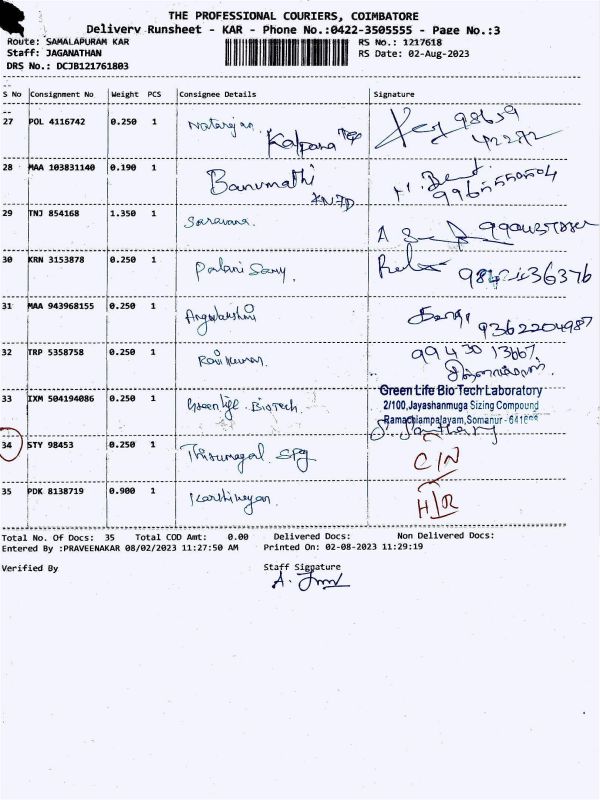 THE PROFESSIONAL COURIERS, COIMBATORE
Delivery Runsheet - KAR - Phone No.:0422-3505555 - Page No.:3
Route: SAMALAPURAM KAR RS No.: 1217618
Staff: JAGANATHAN RS Date: 02-Aug-2023
DRS No.: DCJB121761803
S No Consignment No Weight PCS Consignee Details Signature
27 POL 4116742 0.250 1 Natarajan. Kalpana 98659
42272
28 MAA 103831140 0.190 1 Banumathi
9965550504
29 TNJ 854168 1.350 1 Saravana.
30 KRN 3153878 0.250 1 Palani Samy.
31 MAA 943968155 0.250 1 9362204987
32 TRP 5358758 0.250 1 Ravikumar. 99430 13667
33 IXM 504194086 0.250 1 Green life BioTech. Green Life Bio Tech Laboratory
2/100,Jayashanmuga Sizing Compound
Ramachiampalayam,Somanur -
34 STY 98453 0.250 1 C/N
35 PDK 8138719 0.900 1 Karthikeyan. H/R
Total No. Of Docs: 35 Total COD Amt: 0.00 Delivered Docs: Non Delivered Docs:
Entered By :PRAVEENAKAR 08/02/2023 11:27:50 AM Printed On: 02-08-2023 11:29:19
Verified By Staff Signature